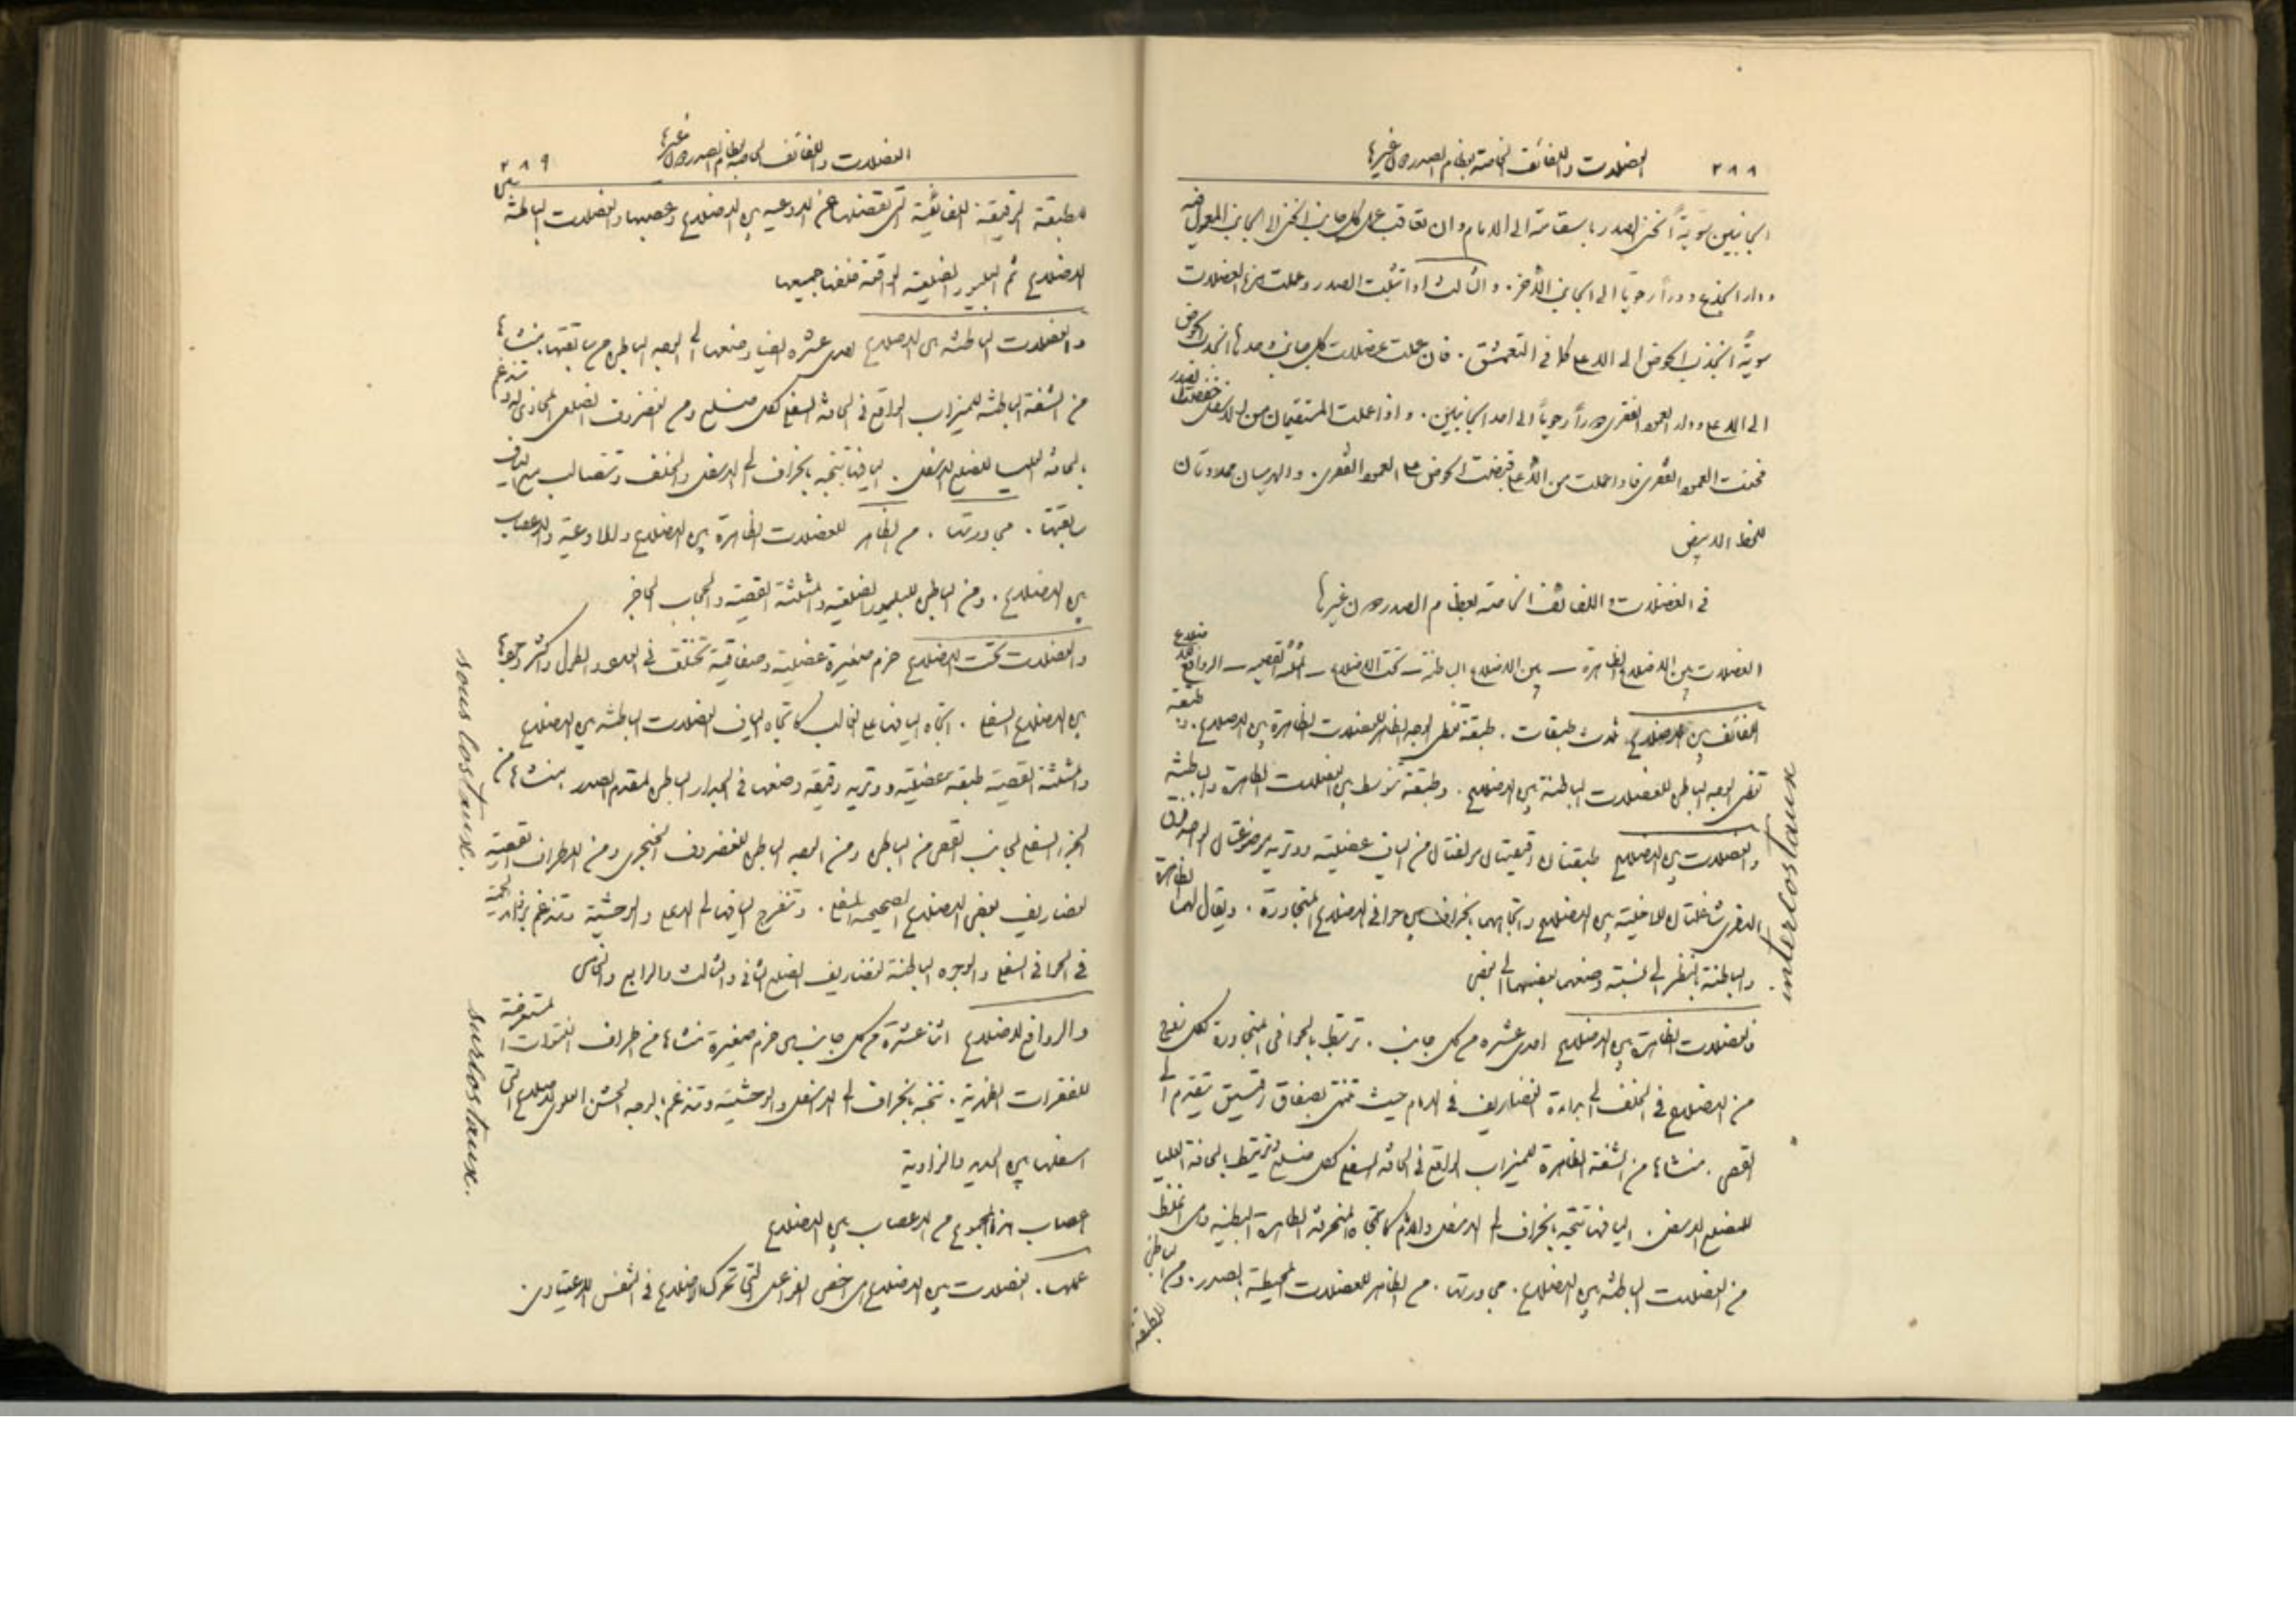 ٢٨٨ العضلات واللفائف الخاصة بعظام الصدر دون غيرها
الجانبين سويةً انحنى الصدر باستقامة الى الامام وان تعاقب عمل كل جانب انحنى الى الجانب المعمول فيه
ودار الجذع دوراً رحوياً الى الجانب الآخر. والثالث اذا تثبت الصدر وعملت هذه العضلات
سويةً انجذب الحوض الى الاعلى كما في التعمشق. فان عملت عضلات كل جانب وحدها انجذب الحوض
الى الاعلى ودار العمود الفقري دوراً رحوياً الى احد الجانبين. واذا عملت المستقيمتان من الاسفل خفضتا الصدر
فحنت العمود الفقري فاذا عملت من الأعلى قبضت الحوض على العمود الفقري. والهرميتان ممددتان
للخط الابيض
في العضلات واللفائف الخاصة بعظام الصدر دون غيرها
العضلات بين الاضلاع الظاهرة ــ بين الاضلاع الباطنة ــ تحت الاضلاع ــ المثلثة القصية ــ الروافع للاضلاع
اللفائف بين الاضلاع. ثلاث طبقات. طبقة تغطي الوجه الظاهر للعضلات الظاهرة بين الاضلاع. وطبقة
تغطي الوجه الباطن للعضلات الباطنة بين الاضلاع. وطبقة تتوسط بين العضلات الظاهرة والباطنة
والعضلات بين الاضلاع طبقتان رقيقتان مؤلفتان من الياف عضلية ووترية موضوعتان الواحدة فوق
الاخرى شاغلتان للاخلية بين الاضلاع واتجاههما بانحراف بين حوافي الاضلاع المتجاورة. ويقال لهما الظاهرة
والباطنة بالنظر الى نسبة وضعهما بعضهما الى بعض
فالعضلات الظاهرة بين الاضلاع احدى عشرة من كل جانب. ترتبط بالحوافي المتجاورة لكل زوج
من الاضلاع في الخلف الى بداءة الغضاريف في الامام حيث تنتهي بصفاق رقيق يتقدم الى
القص. منشأها من الشفة الظاهرة للميزاب الواقع في الحافة السفلى لكل ضلع وترتبط بالحافة العليا
للضلع الاسفل. اليافها تتجه بانحراف الى الاسفل والامام كاتجاه المنحرفة الظاهرة البطنية وهي اغلظ
من العضلات الباطنة بين الاضلاع. مجاورتها. من الظاهر للعضلات المحيطة بالصدر. ومن الباطن
للطبقة
intercostaux
العضلات واللفائف الخاصة بعظام الصدر دون غيرها ٢٨٩
للطبقة الرقيقة اللفائفية التي تفصلها عن الاوعية بين الاضلاع وعصبها والعضلات الباطنة بين
الاضلاع ثم البليورا الضلعية الواقعة خلفها جميعها
والعضلات الباطنة بين الاضلاع احدى عشرة ايضاً وضعها الى الوجه الباطن من سابقتها. منشأها
من الشفة الباطنة للميزاب الواقع في الحافة السفلى لكل ضلع ومن الغضروف الضلعي المحاذي له وتندغم
بالحافة العليا للضلع الاسفل. اليافها تتجه بانحراف الى الاسفل والخلف وتتصالب مع الياف
سابقتها. مجاورتها. من الظاهر للعضلات الظاهرة بين الاضلاع وللاوعية والاعصاب
بين الاضلاع. ومن الباطن للبليورا الضلعية والمثلثة القصية والحجاب الحاجز
والعضلات تحت الاضلاع حزم صغيرة عضلية وصفاقية تختلف في العدد والطول واكثر وجودها
بين الاضلاع السفلى. اتجاه اليافها على الغالب كاتجاه الياف العضلات الباطنة بين الاضلاع
والمثلثة القصية طبقة عضلية ووترية رقيقة وضعها في الجدار الباطن لمقدم الصدر. منشأها من
الجزء السفلي لجانب القص من الباطن ومن الوجه الباطن للغضروف الخنجري ومن الاطراف القصية
لغضاريف بعض الاضلاع الصحيحة السفلى. وتنفرج اليافها الى الاعلى والوحشية وتندغم بزوائد لحمية
في الحوافي السفلى والوجوه الباطنة لغضاريف الضلع الثاني والثالث والرابع والخامس
والروافع للاضلاع اثنا عشرة من كل جانب هي حزم صغيرة منشأها من اطراف النتوءات المستعرضة
للفقرات الظهرية. تتجه بانحراف الى الاسفل والوحشية وتندغم بالوجه الخشن العلوي للاضلاع التي
اسفلها بين الحدبة والزاوية
اعصاب هذا المجموع من الاعصاب بين الاضلاع
عملها. العضلات بين الاضلاع هي اخص الفواعل التي تحرك الاضلاع في التنفس الاعتيادي.
sous costaux.
surcostaux.